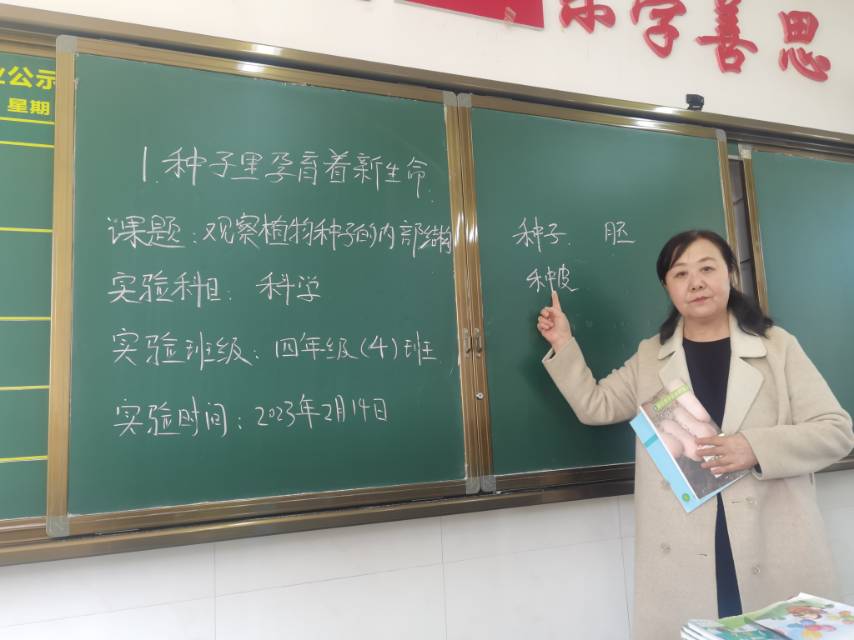 乐学善思
业公示
星期
1.种子里孕育着新生命.
课题:观察植物种子的内部结构
实验科目: 科学
实验班级: 四年级(4)班
实验时间: 2023年2月14日
种子. 胚
种皮